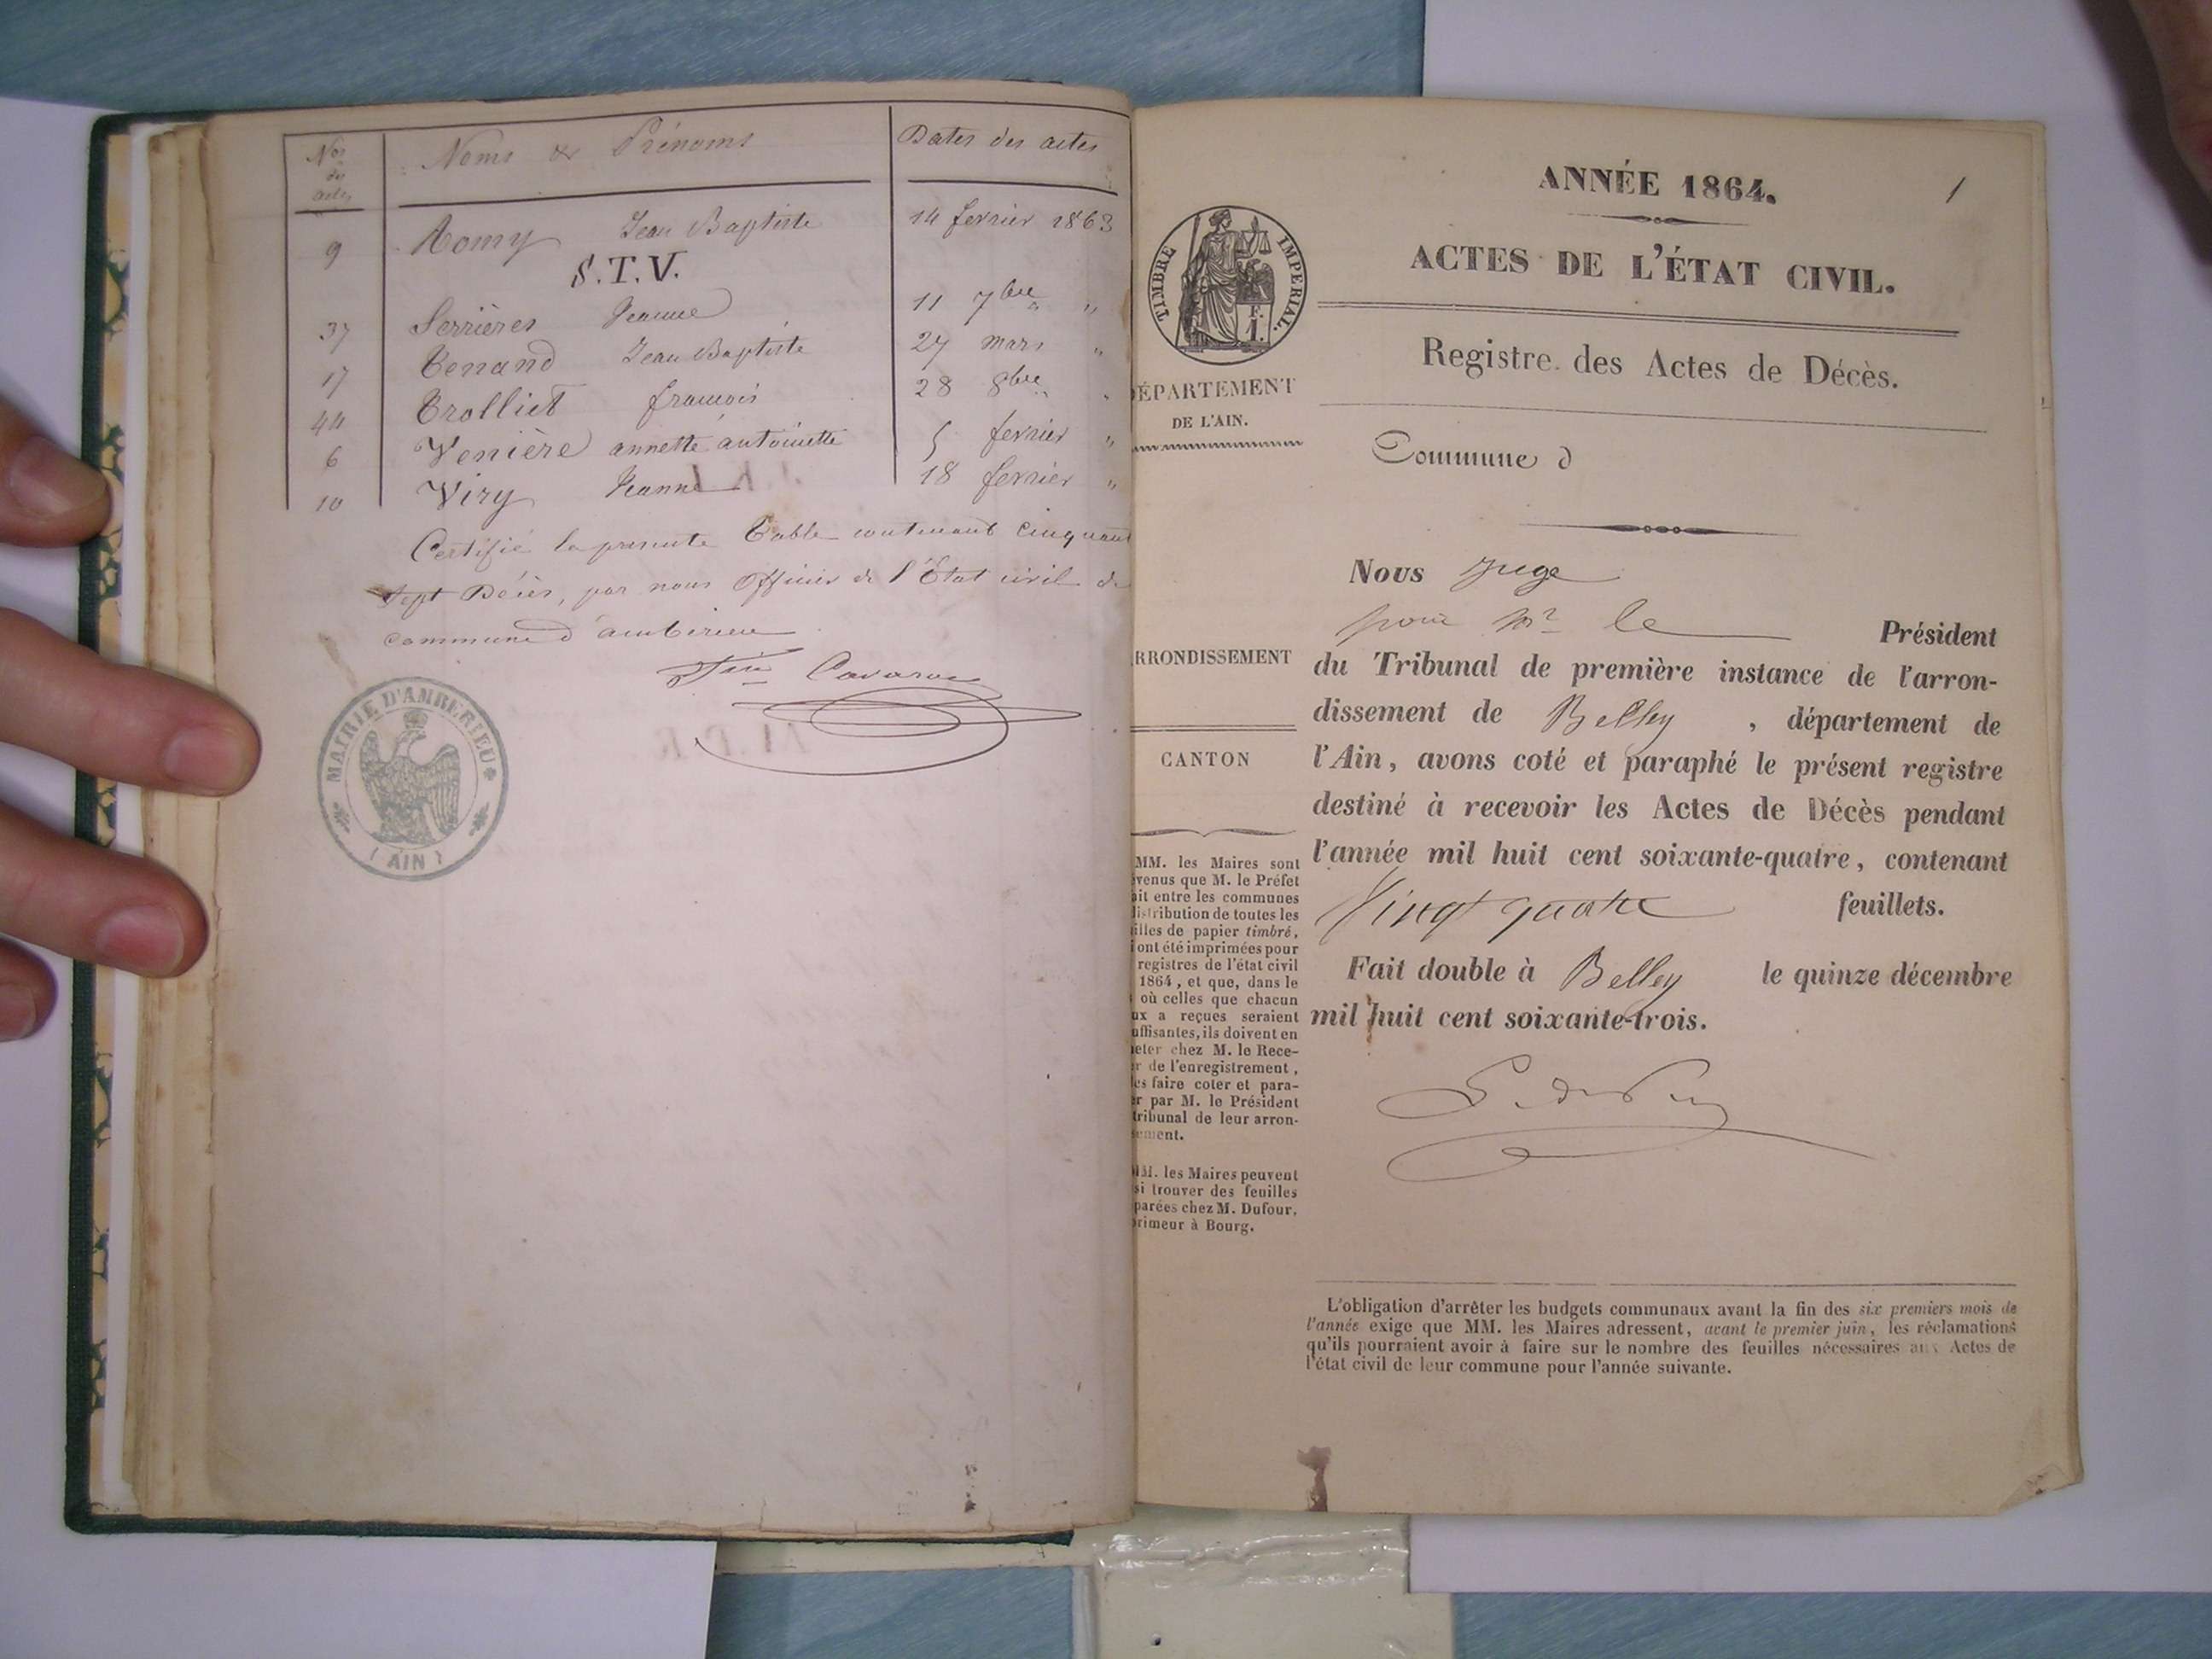 Nos des actes
Noms & Prénoms
Dates des actes
9 Romy Jean Baptiste 14 fevrier 1863
S.T.V.
37 Serrières Jeanne 11 7bre " "
17 Tenand Jean Baptiste 27 mars "
44 Trolliet françois 28 8bre "
6 Venière annette antoinette 5 fevrier "
10 Viry Jeanne 18 fevrier "
Certifié la presente Table contenant cinquant
sept Décès, par nous Officier de l'État civil de
commune d'ambérieu
MAIRIE D'AMBERIEU
(AIN)
1
ANNÉE 1864.
TIMBRE IMPERIAL.
F. 1.
ACTES DE L'ÉTAT CIVIL.
Registre des Actes de Décès.
ÉPARTEMENT
DE L'AIN.
Commune d
Nous Juge
pour Mr le Président
du Tribunal de première instance de l'arron-
dissement de Belley , département de
l'Ain, avons coté et paraphé le présent registre
destiné à recevoir les Actes de Décès pendant
l'année mil huit cent soixante-quatre, contenant
Vingt quatre feuillets.
Fait double à Belley le quinze décembre
mil huit cent soixante-trois.
RRONDISSEMENT
CANTON
MM. les Maires sont
venus que M. le Préfet
it entre les communes
distribution de toutes les
illes de papier timbré,
ont été imprimées pour
registres de l'état civil
1864, et que, dans le
où celles que chacun
ux a reçues seraient
uffisantes, ils doivent en
eter chez M. le Rece-
r de l'enregistrement,
es faire coter et para-
er par M. le Président
tribunal de leur arron-
ement.
MM. les Maires peuvent
si trouver des feuilles
parées chez M. Dufour,
rimeur à Bourg.
L'obligation d'arrêter les budgets communaux avant la fin des six premiers mois de
l'année exige que MM. les Maires adressent, avant le premier juin, les réclamations
qu'ils pourraient avoir à faire sur le nombre des feuilles nécessaires aux Actes de
l'état civil de leur commune pour l'année suivante.